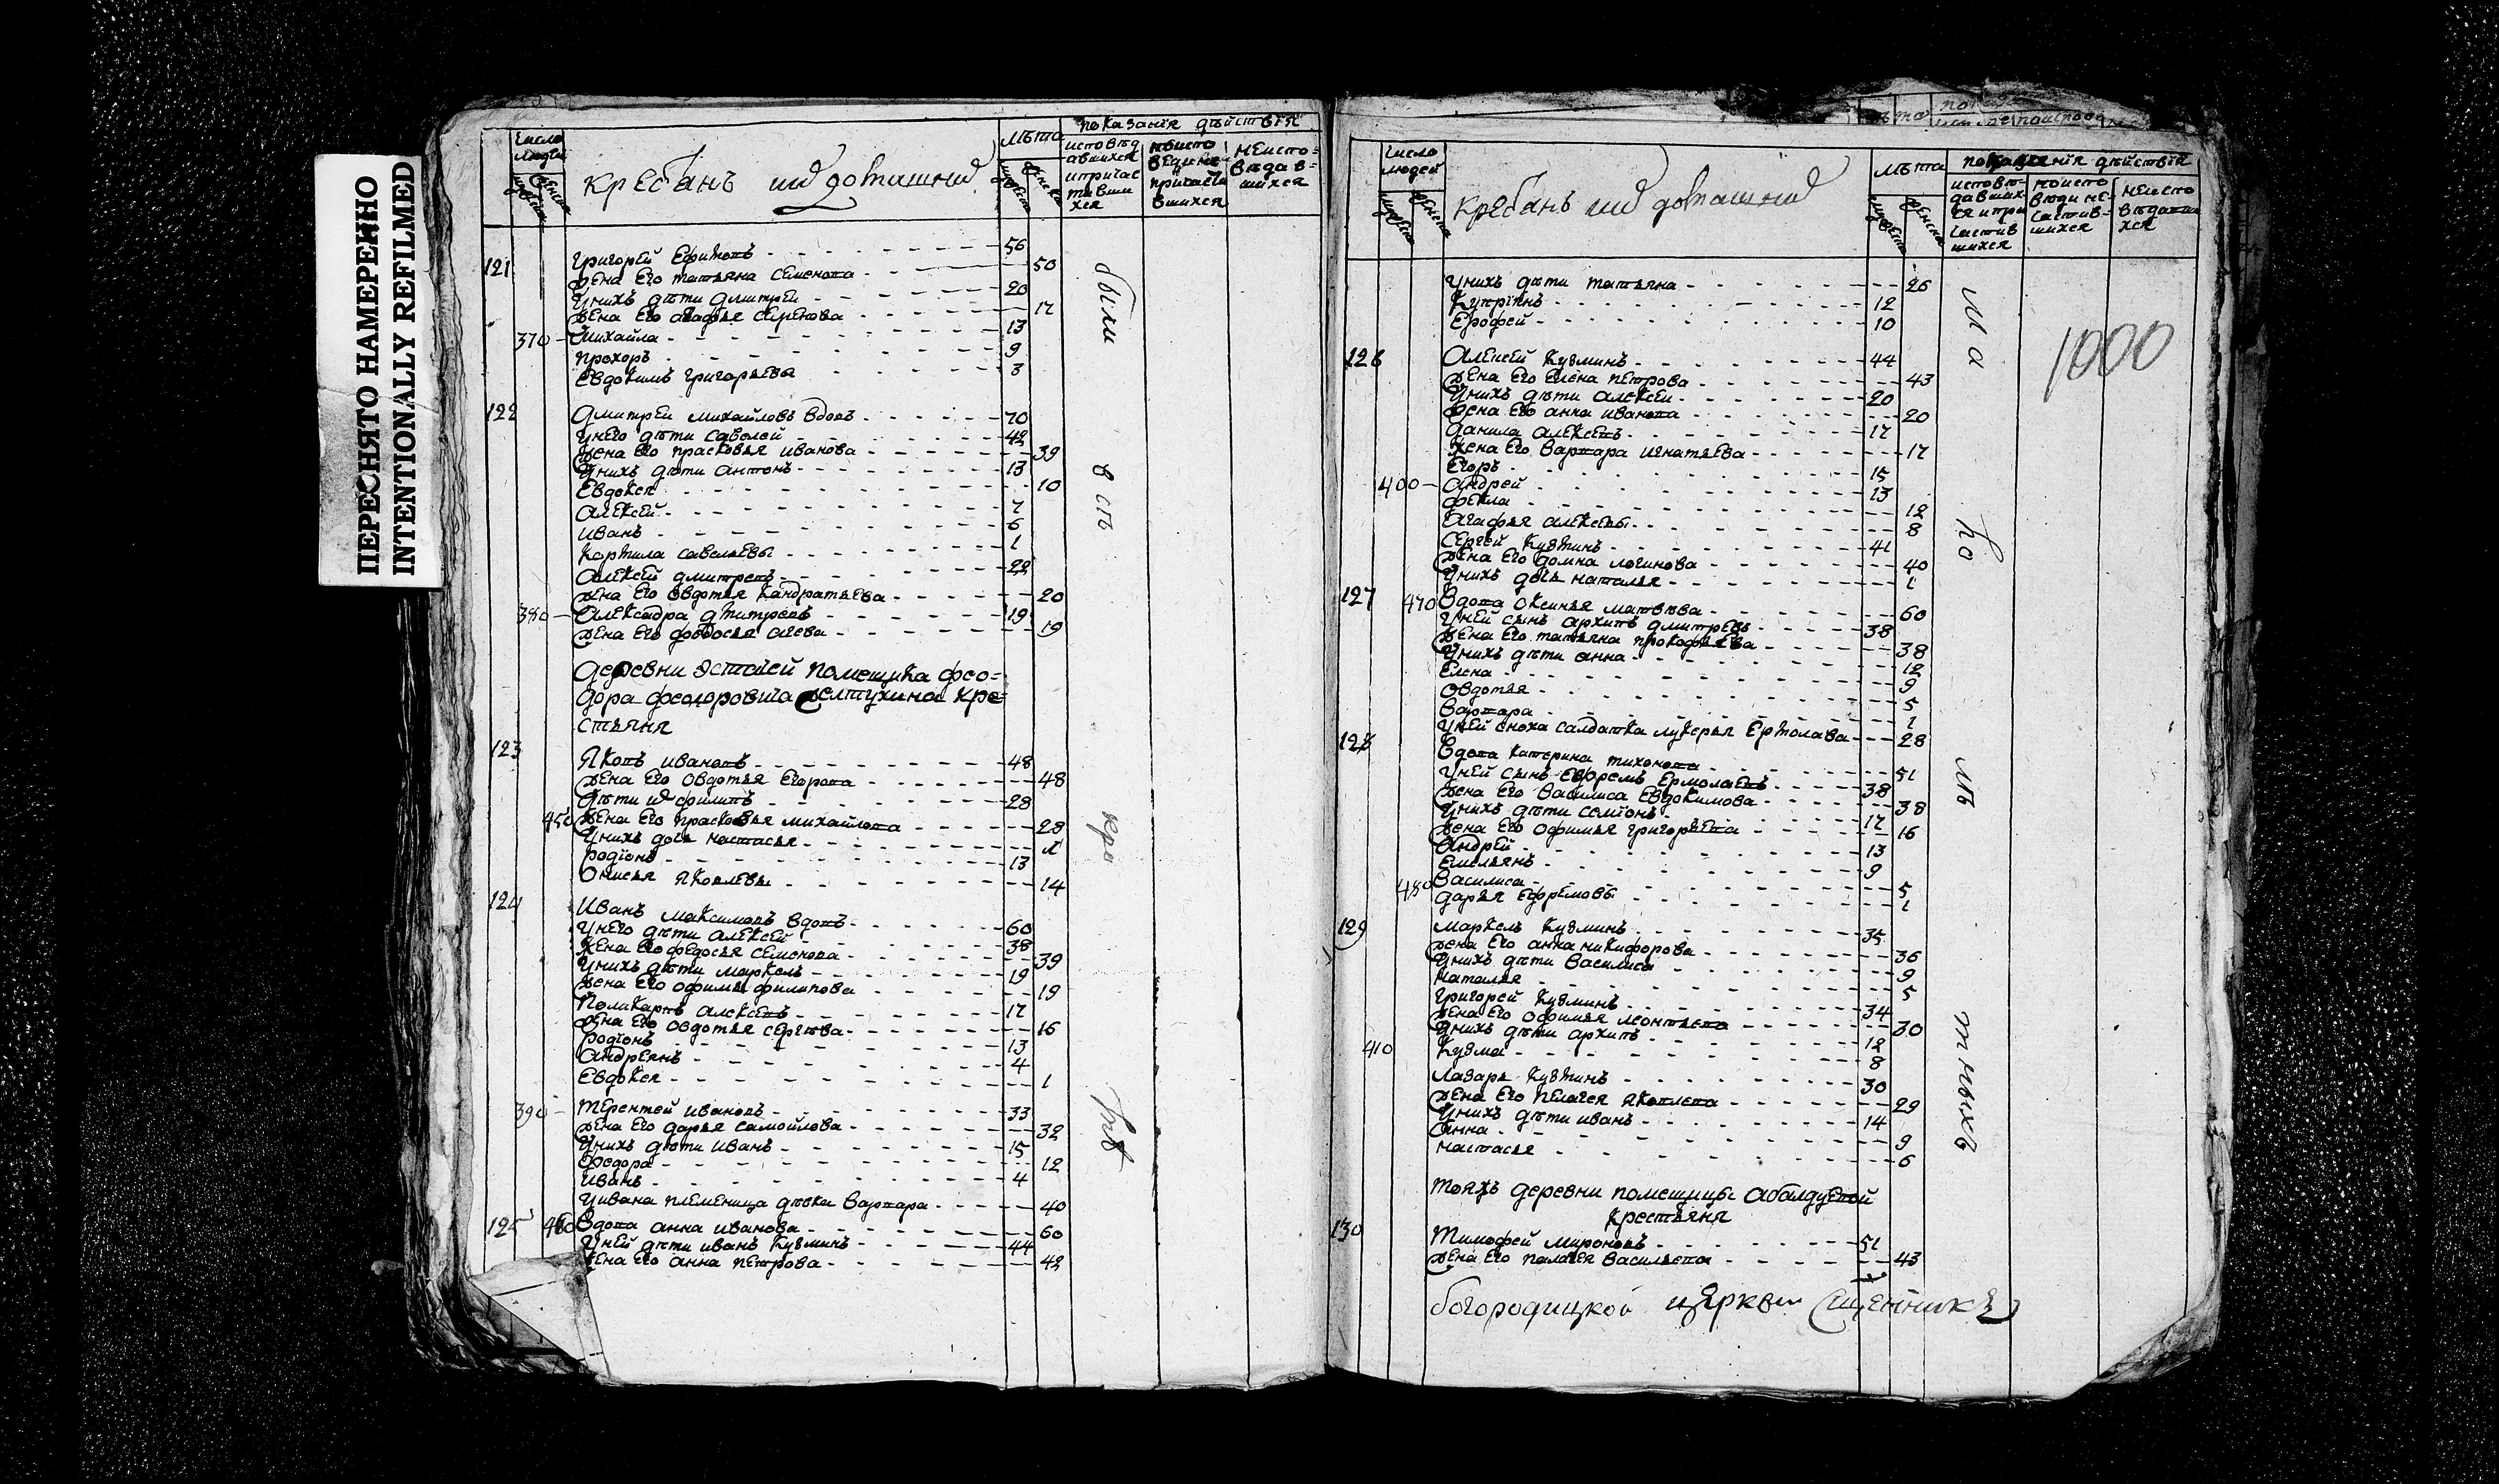 ПЕРЕСНЯТО НАМЕРЕННО
INTENTIONALLY REFILMED
число людей
крестьянъ и домашнихъ
лѣта
показанiя дѣйствiя
исповѣдавшихся и причастившихся
неисповѣдавшихся
121 григорей Ефимовъ 56
жена Его татьяна семенова 50
унихъ дѣти дмитрей 20
жена Его агафья сергеева 17
370 михайла 13
прохоръ 9
Евдокимъ григорьевы 3
122 дмитрей михайловъ вдовъ 70
унего дѣти савелей 42
жена Его прасковья иванова 39
унихъ дѣти антонъ 13
Евдокея 10
алексей 7
иванъ 6
кормила савельевы 1
алексей дмитревъ 22
жена Его овдотья кандратьева 20
380 алексадра дмитревъ 19
жена Его федосья 19
деревни помещика фео=
дора феодоровича желтухина кре=
стьяня
123 Яковъ ивановъ 48
жена Его овдотья Егорова 48
дѣти ихъ филипъ 28
450 жена Его прасковья михайлова 28
унихъ дочь настасья
родiонъ 13
онисья яковлевы 14
124 иванъ максимовъ вдовъ 60
унего дѣти алексей 38
жена Его федосья семенова 39
унихъ дѣти маркелъ 19
жена Его офимья филипова 19
поликарпъ алексевъ 17
жена Его овдотья сергѣева 16
родiонъ 13
андреянъ 4
Евдокея 1
390 терентей ивановъ 33
жена Его дарья самойлова 32
унихъ дѣти иванъ 15
федора 12
иванъ 4
уивана племеница дѣвка варвара 40
125 460 вдова анна иванова 60
уней дѣти иванъ кузминъ 44
жена Его анна петрова 42
были въ сп
число людей
крестьянъ и домашнихъ
лѣта
показанiя дѣйствiя
унихъ дѣти татьяна 26
купрiянъ 12
Ерофей 10
126 алексей кузминъ 44
жена Его Елена петрова 43
унихъ дѣти алексей 20
жена Его анна иванова 20
данила алексевъ 17
жена Его варвара игнатьева 17
Егоръ 15
400 андрей 13
фекла 12
агафья алексевы 8
сергей кузминъ 41
жена Его домна логинова 40
унихъ дочь наталья 1
127 470 вдова оксинья матвѣва 60
уней сынъ архипъ дмитревъ 38
жена Его татьяна прокофьева 38
унихъ дѣти анна 12
Елена 9
овдотья 5
варвара 1
уней сноха салдатка лукерья Ермолава 28
128 вдова катерина тихонова 51
уней сынъ Ефремъ Ермолаевъ 38
жена Его василиса Евдокимова 38
унихъ дѣти семiонъ 17
жена Его офимья григорьева 16
андрей 13
Емельянъ 9
480 василиса 5
дарья Ефремовы 1
129 маркелъ кузминъ 35
жена Его анна никифорова 36
унихъ дѣти василиса 9
наталья 5
григорей кузминъ 34
жена Его офимья леонтьева 30
унихъ дѣти архипъ 12
410 кузма 8
лазарь кузминъ 30
жена Его пелагея яковлева 29
унихъ дѣти иванъ 14
анна 9
настасья 6
тояжъ деревни помещицы абалдуевой
крестьяня
130 тимофей мироновъ 51
жена Его палагея васильева 43
1000
богородицкой церкви священникъ